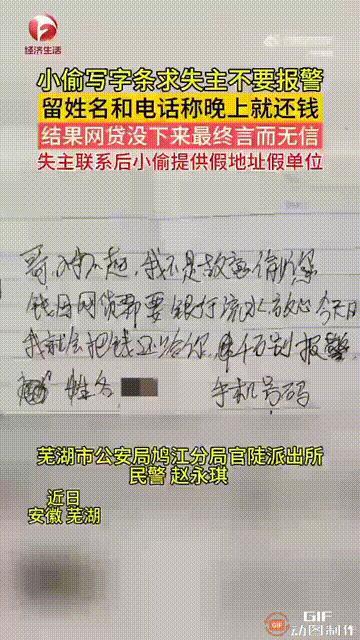 经济生活
小偷写字条求失主不要报警
留姓名和电话称晚上就还钱
结果网贷没下来最终言而无信
失主联系后小偷提供假地址假单位
哥,对不起,我不是故意偷你家
钱因网贷需要银行流水放心今天
我就会把钱还给你,千万别报警
姓名 手机号码
芜湖市公安局鸠江分局官陡派出所
民警 赵永琪
近日
安徽 芜湖
GIF
GIF
动图制作